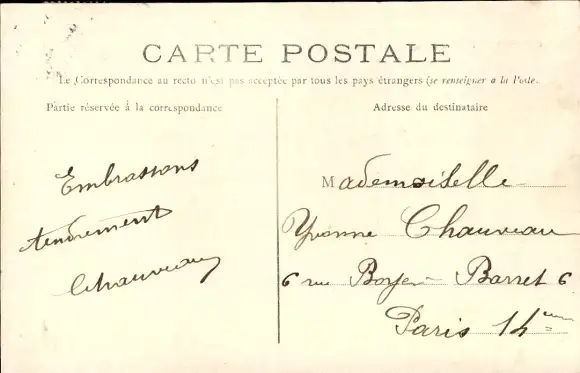 CARTE POSTALE
Le Correspondance au recto n'est pas acceptée par tous les pays étrangers (se renseigner a la Poste.
Partie réservée à la correspondance
Adresse du destinataire
Embrassons
tendrement
Chauveau
Mademoiselle
Yvonne Chauveau
6 rue Boyer-Barret 6
Paris 14eme